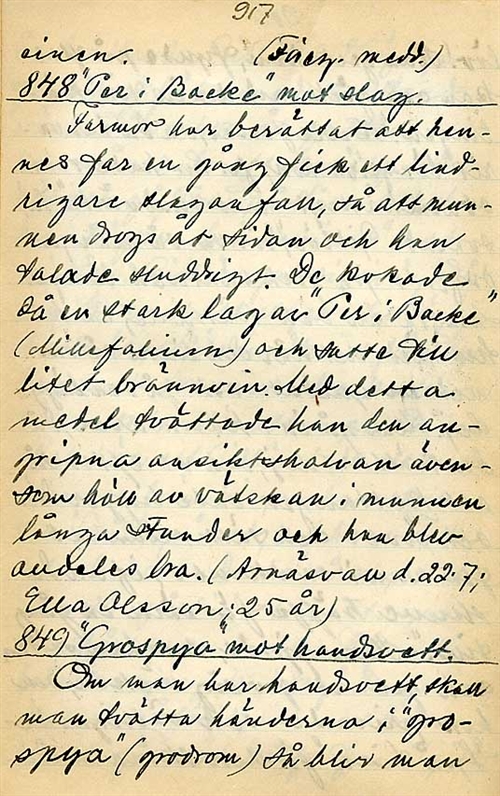 917
einen. (Föreg. medd.)
848 "Per i Backe" mot slag.
Farmor har berättat att hen-
nes far en gång fick ett lind-
rigare slaganfall, så att mun-
nen drogs åt sidan och han
talade sluddrigt. De kokade
då en stark lag av "Per i Backe"
(Millefolium) och satte till
litet brännvin. Med detta
medel tvättade han den an-
gripna ansiktshalvan även-
som höll av vätskan i munnen
långa stunder och han blev
alldeles bra. (Arnäsvall d. 22.7;
Ella Olsson; 25 år)
849 "Grospya" mot handsvett.
Om man har handsvett, skall
man tvätta händerna i "gro-
spya" (grodrom) så blir man